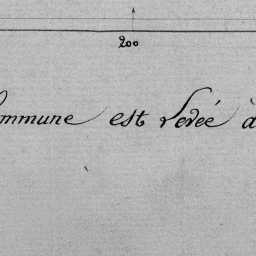 200
ommune est levée à